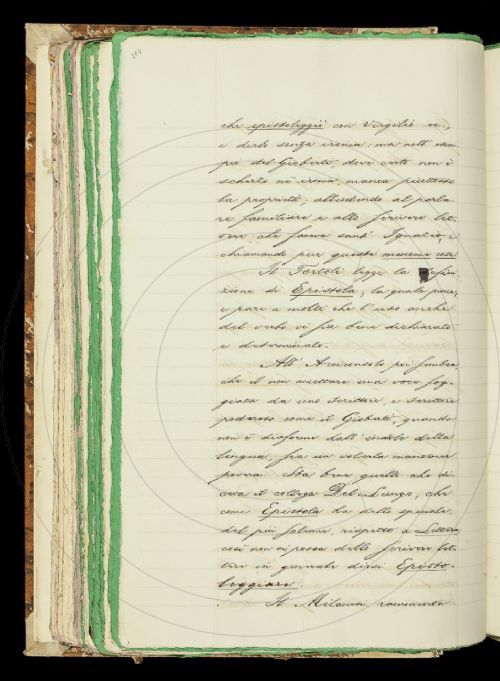 264
che epistoleggiò con Virgilio ec.,
e dirlo senza ironia: ma nell' esem-
pio del Gioberti, dove certo non è
scherzo nè ironia, manca piuttosto
la proprietà; alludendo al parla-
re familiare e allo scrivere let-
tere che faceva sant' Ignazio, e
chiamando pur queste
Il Tortoli legge la defini-
zione di Epistola; la quale piace,
e pare a molti che l'uso anche
del verbo vi sia bene dichiarato
e determinato.
All' Arciconsolo poi sembra
che il non accettare una voce fog-
giata da uno scrittore, e scrittore
poderoso come il Gioberti, quando
non è disforme dall' indole della
lingua, sia un volerla mantener
povera. Sta bene quello che di-
ceva il collega Del Lungo, che
come Epistola ha dello speciale,
del più solenne, rispetto a Lettera,
così non si possa dello scrivere let-
tere in generale dirsi Episto-
leggiare.
Il Milanesi rammenta